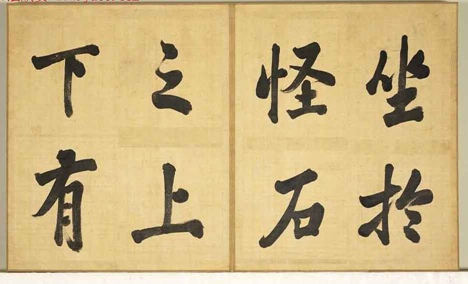 坐於
怪石
之上
下有